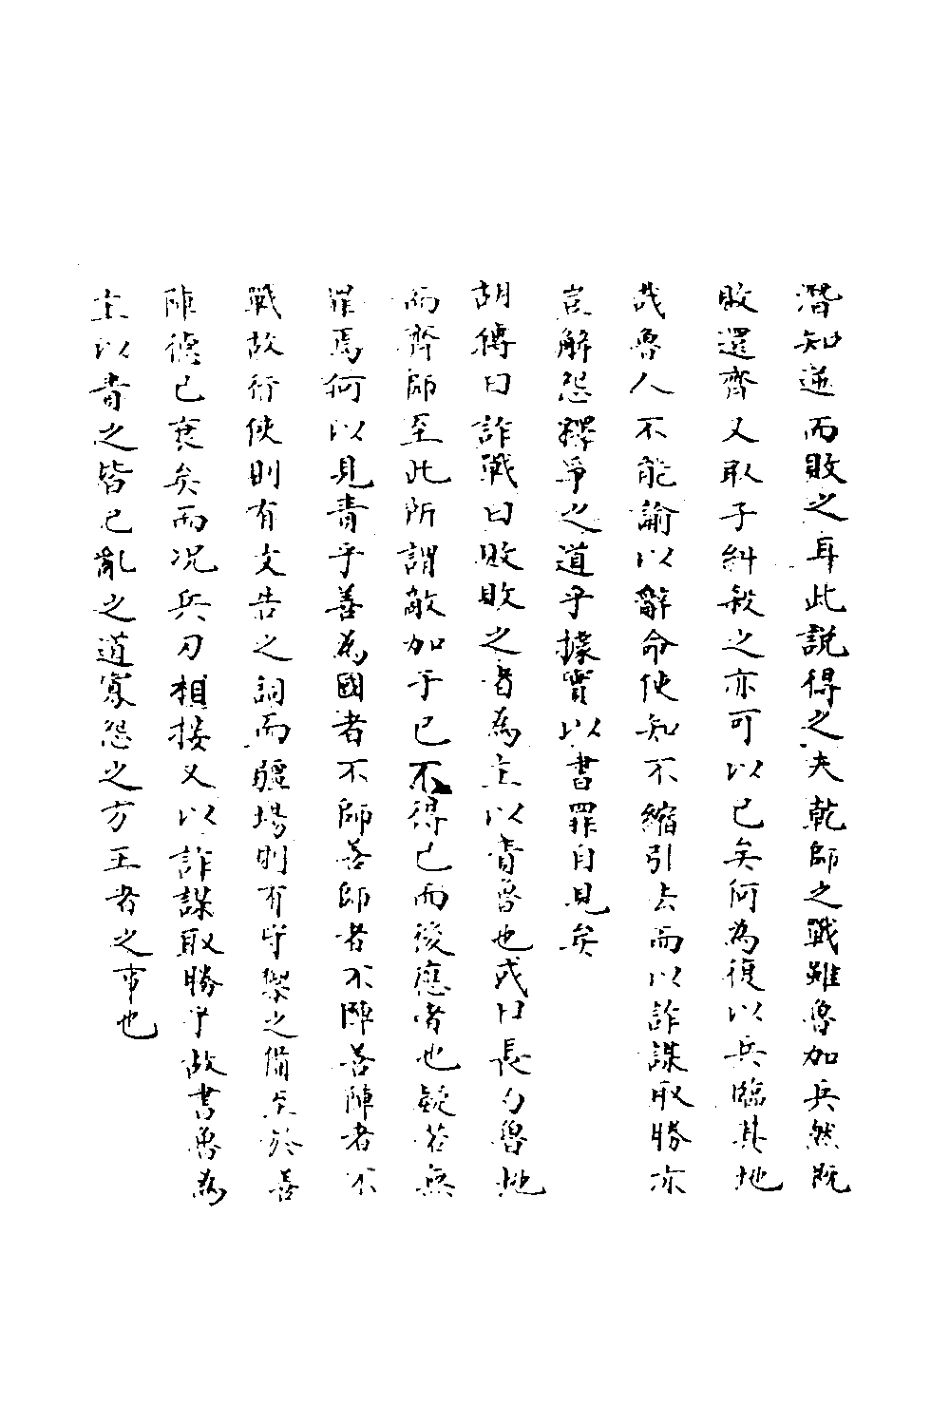 潛知逆而敗之耳此説得之夫乾師之戰雖魯加兵然既
敗還齊又取子糾殺之亦可以已矣何為復以兵臨其地
哉魯人不能諭以辭命使知不縮引去而以詐謀取勝亦
豈解怨釋爭之道乎據實以書罪自見矣
胡傳曰詐戰曰敗敗之者為主以責魯也或曰長勺魯地
而齊師至此所謂敵加于己不得已而後應者也疑若無
罪焉何以見責乎善為國者不師善師者不陣善陣者不
戰故行使則有文告之詞而疆場則有守禦之備至於善
陣德已衰矣而况兵刃相接又以詐謀取勝乎故書魯為
主以責之皆已亂之道寡怨之方王者之事也